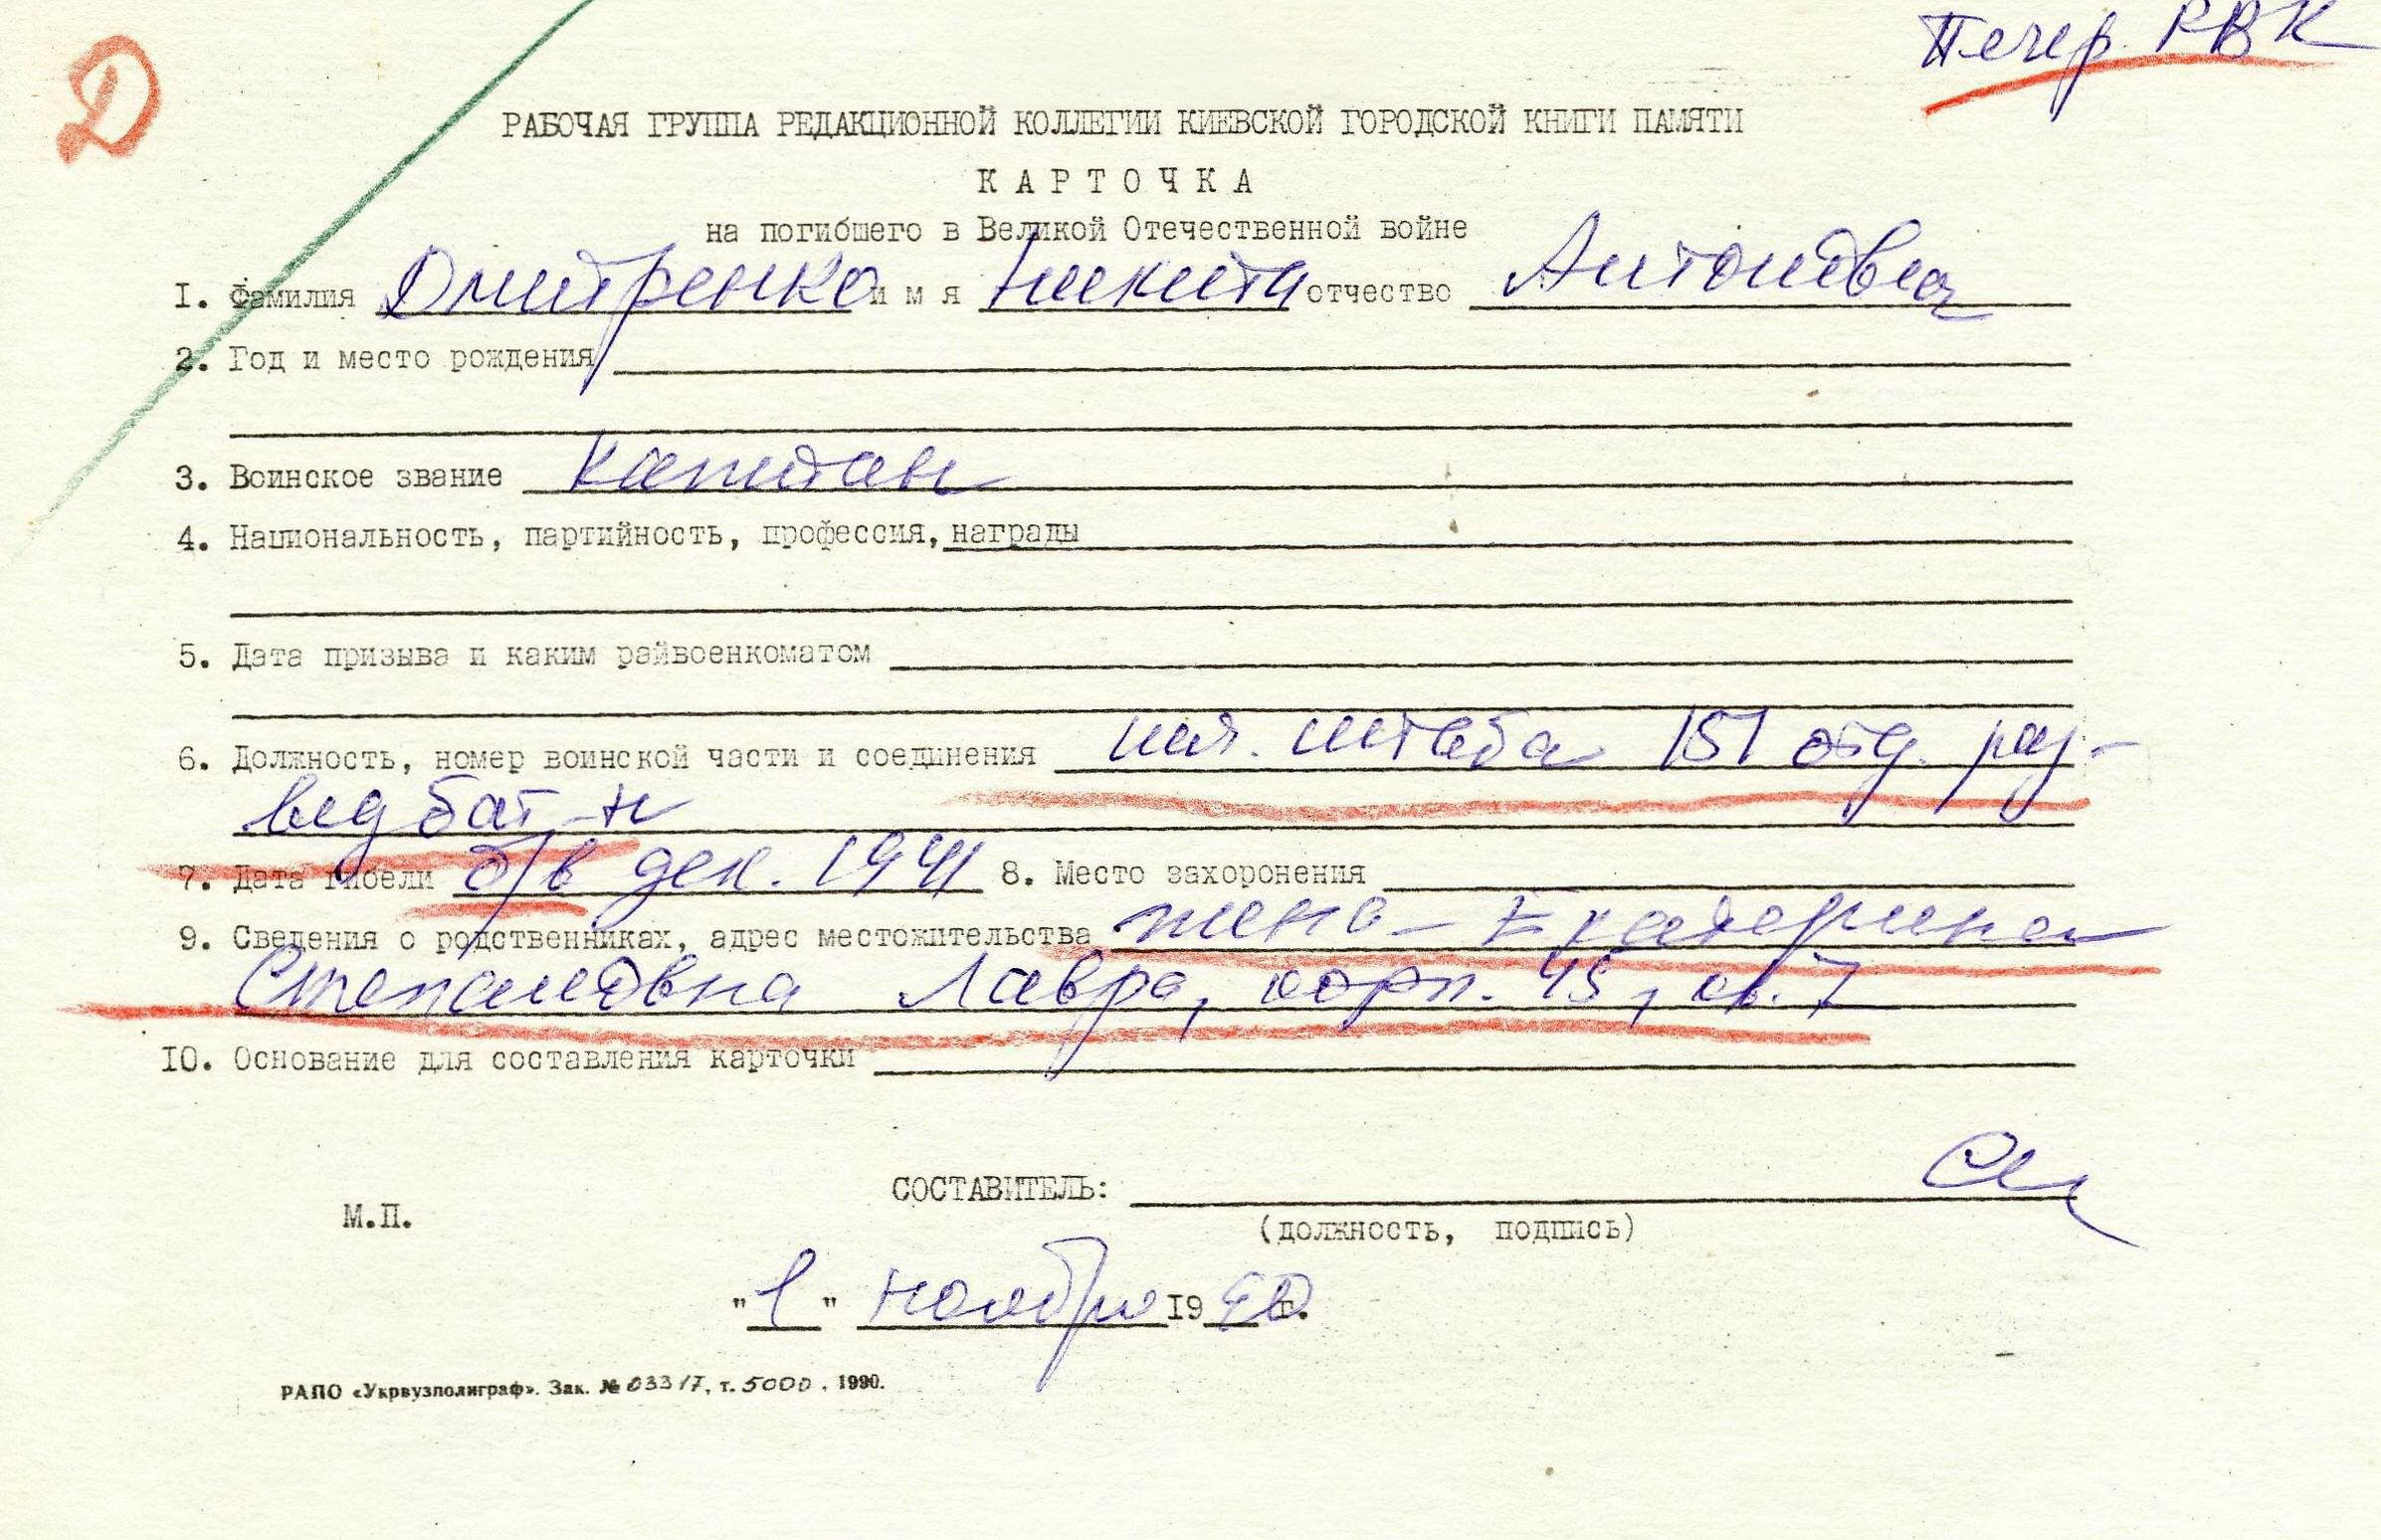 Д
Печер. РВК
РАБОЧАЯ ГРУППА РЕДАКЦИОННОЙ КОЛЛЕГИИ КИЕВСКОЙ ГОРОДСКОЙ КНИГИ ПАМЯТИ
КАРТОЧКА
на погибшего в Великой Отечественной войне
I. Фамилия Дмитренко имя Никита отчество Антонович
2. Год и место рождения
3. Воинское звание капитан
4. Национальность, партийность, профессия, награды
5. Дата призыва и каким райвоенкоматом
6. Должность, номер воинской части и соединения нач. штаба 151 отд. раз-
вед бат-н
7. Дата гибели б/в дек. 1941 8. Место захоронения
9. Сведения о родственниках, адрес местожительства жена - Екатерина
Степановна Лавра, корп. 45, кв. 7
IO. Основание для составления карточки
СОСТАВИТЕЛЬ:
М.П.
(должность, подпись)
"1" ноября 1990 г.
РАПО «Укрвузполиграф». Зак. № 03317, т. 5000, 1990.